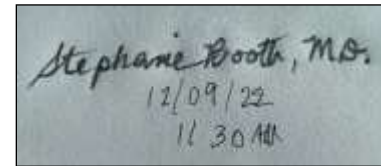 Stephanie Booth, MD.
12/09/22
11 30 AM